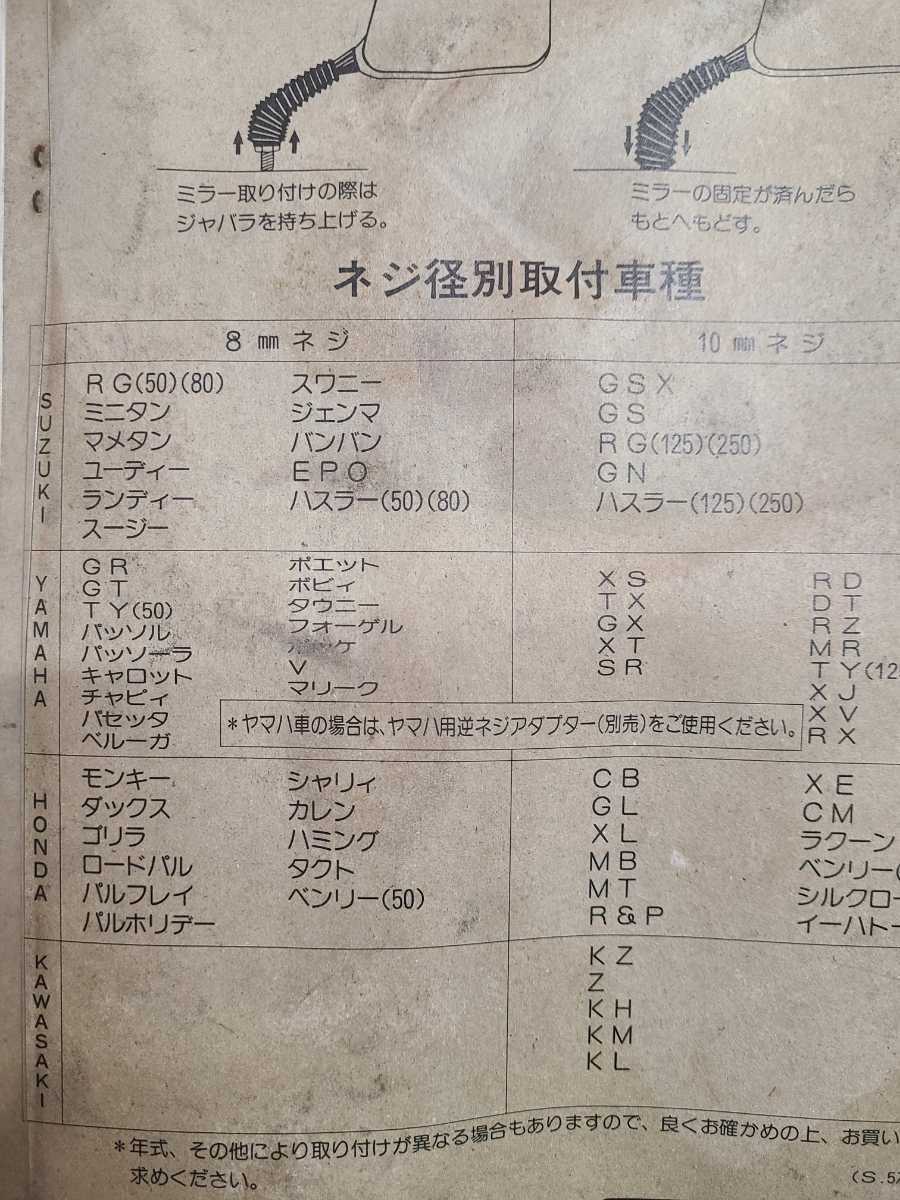 ミラー取り付けの際は
ジャバラを持ち上げる。
ミラーの固定が済んだら
もとへもどす。
ネジ径別取付車種
8 mm ネジ
10 mm ネジ
SUZUKI
RG(50)(80)
ミニタン
マメタン
ユーディー
ランディー
スージー
スワニー
ジェンマ
バンバン
EPO
ハスラー(50)(80)
GSX
GS
RG(125)(250)
GN
ハスラー(125)(250)
YAMAHA
GR
GT
TY(50)
パッソル
パッソーラ
キャロット
チャピィ
パセッタ
ベルーガ
ポエット
ボビィ
タウニー
フォーゲル
V
マリーク
XS
TX
GX
XT
SR
RD
DT
RZ
MR
TY(12
XJ
XV
RX
*ヤマハ車の場合は、ヤマハ用逆ネジアダプター(別売)をご使用ください。
HONDA
モンキー
ダックス
ゴリラ
ロードパル
パルフレイ
パルホリデー
シャリィ
カレン
ハミング
タクト
ベンリー(50)
CB
GL
XL
MB
MT
R&P
XE
CM
ラクーン
ベンリー(
シルクロー
イーハトー
KAWASAKI
KZ
Z
KH
KM
KL
*年式、その他により取り付けが異なる場合もありますので、良くお確かめの上、お買い
求めください。
(S.57